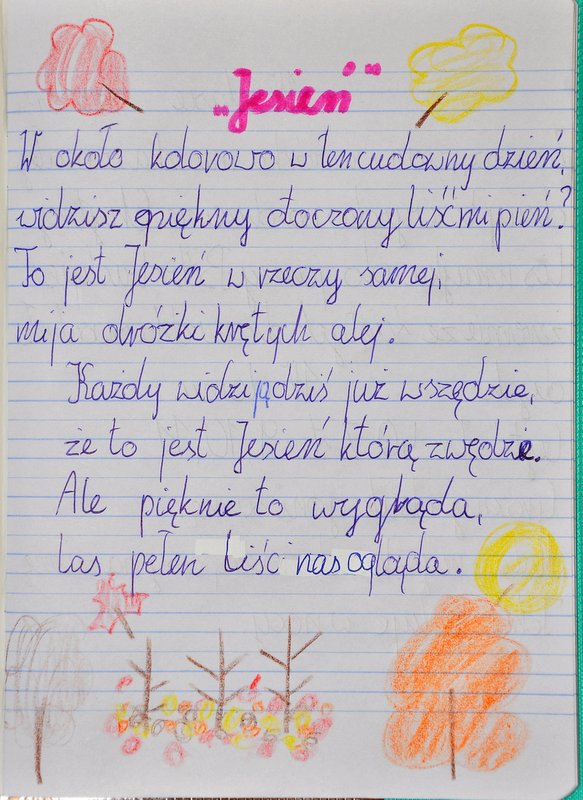 „Jesień”
W około kolorowo w ten cudowny dzień,
widzisz piękny otoczony liśćmi pień?
To jest Jesień w rzeczy samej,
mija dróżki krętych alej.
Każdy widzi ją dziś już wszędzie,
że to jest Jesień którą zwędzie.
Ale pięknie to wygląda,
las pełen liści nas ogląda.